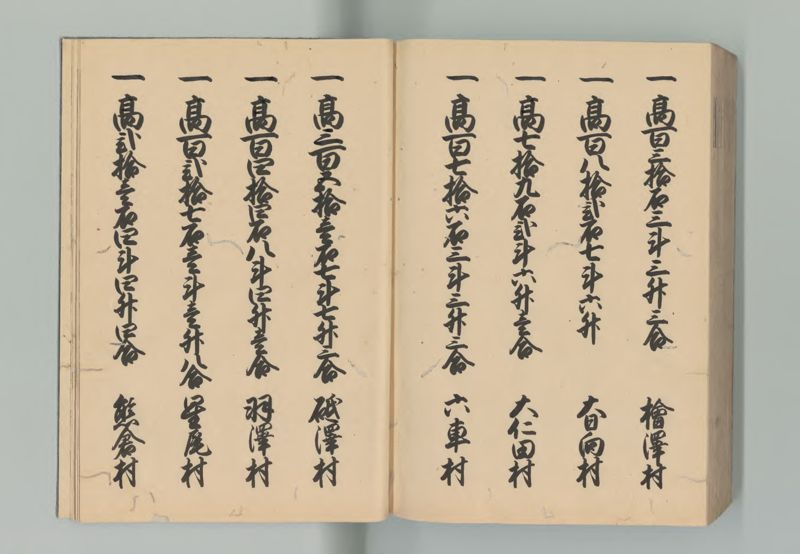 一 高百三拾石三斗三升三合 檜澤村
一 高百八拾弐石七斗六升 大日向村
一 高七拾九石弐斗六升壱合 大仁田村
一 高百七拾六石三斗三升三合 六車村
一 高三百五拾壱石七斗七升三合 砥澤村
一 高百四拾四石八斗四升壱合 羽澤村
一 高百弐拾七石壱斗壱升八合 星尾村
一 高弐拾壱石四斗四升四合 熊倉村